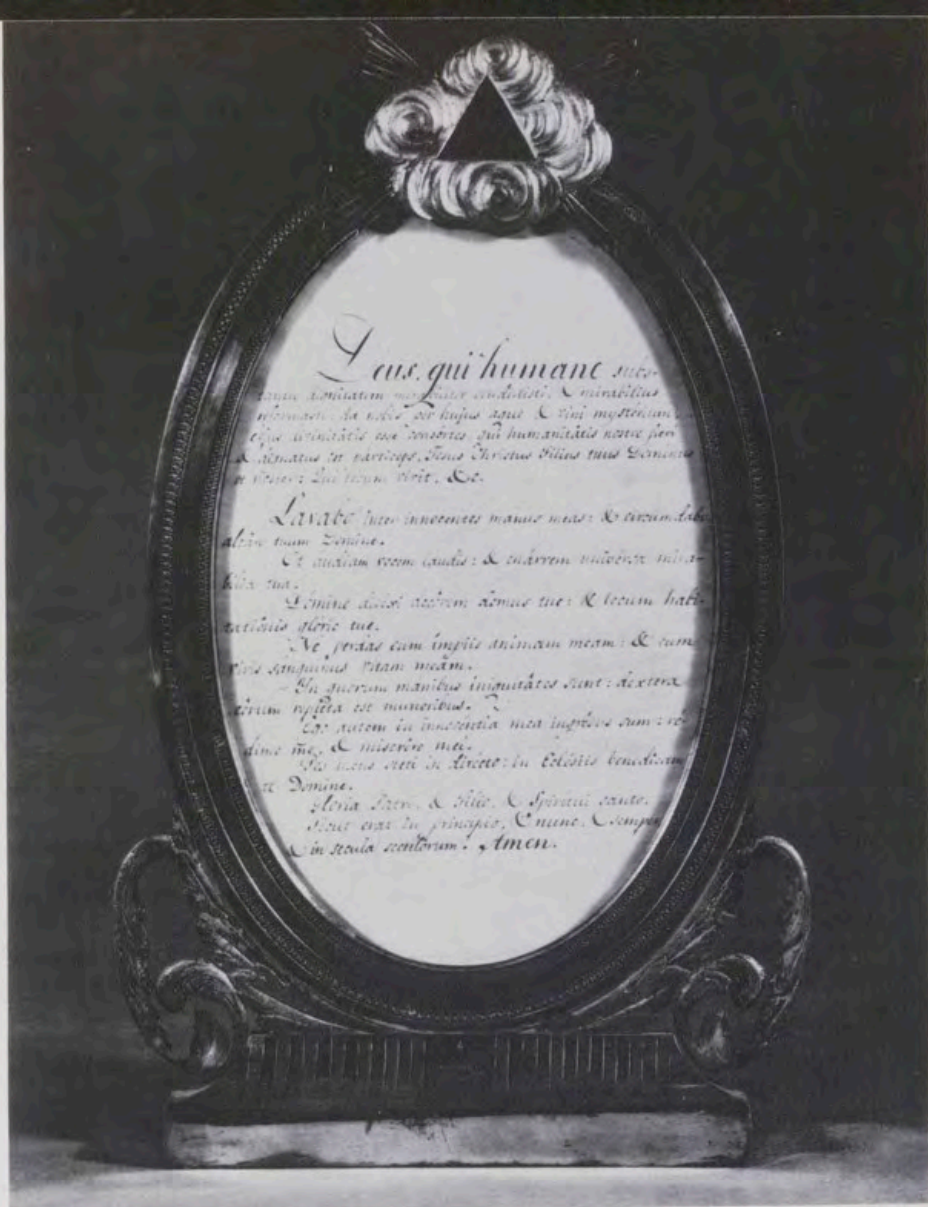 Deus, qui humane subs-
dignitatem mirabiliter condidisti: & mirabilius
reformasti: da nobis per hujus aque & vini mysterium
ejus divinitátis esse consórtes, qui humanitátis nostre fieri
dignatus est párticeps, Jesus Christus Filius tuus Dominus
noster: Qui tecum vivit, &c.
Lavabo inter innocentes manus meas: & circumdabo
altáre tuum Domine.
Ut audiam vocem laudis: & enárrem universa mira-
bilia tua.
Domine diléxi decórem domus tue: & locum habi-
tatiónis glorie tue.
Ne perdas cum ímpiis animam meam: & cum
viris sanguinus vitam meám.
In quorum manibus iniquitátes sunt: dextera
eórum repléta est muneribus.
Ego autem in innocéntia mea ingressus sum: ré-
dime me, & miserére mei.
Pes meus stetit in dirécto: in Eclésiis benedicam
te Domine.
Gloria Patri, & Filio, & Spiritui santo.
Sicut erat in principio, & nunc, & semper
& in sécula seculórum. Amen.